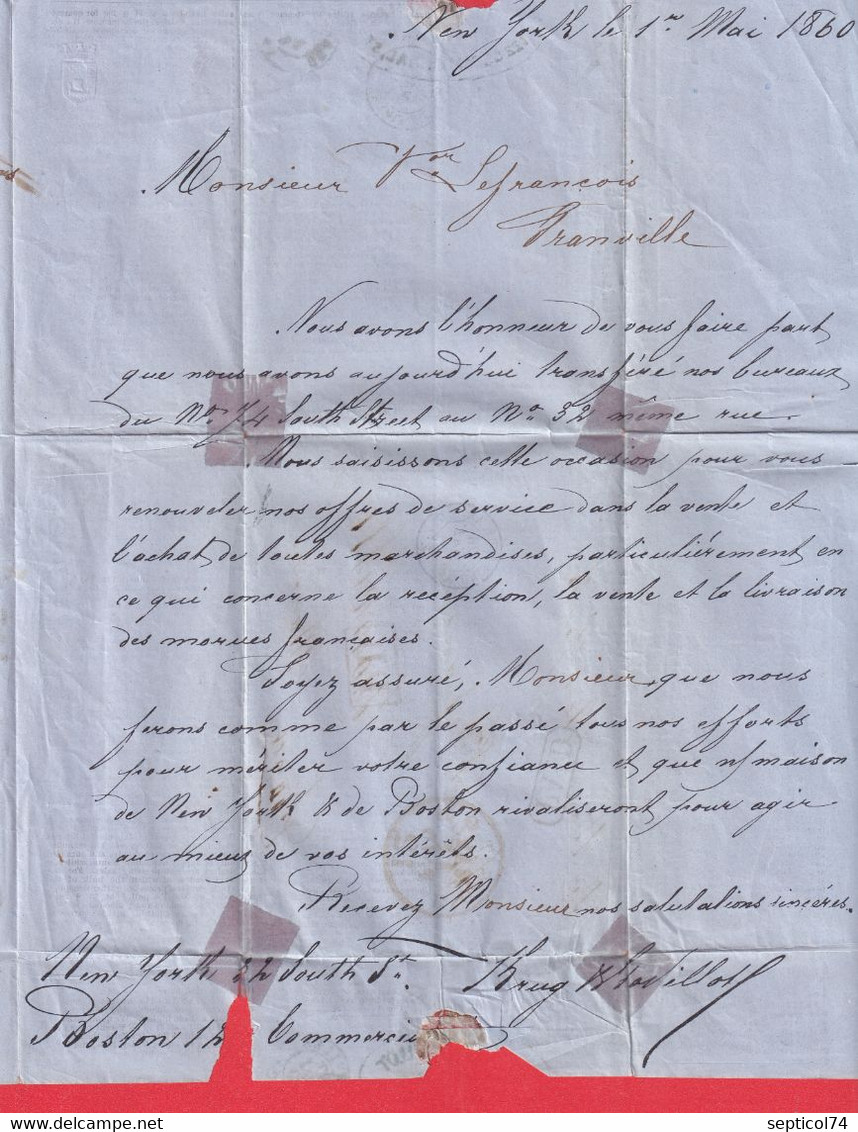 New York le 1er Mai 1860
Monsieur Vor Lefrançois
Granville
Nous avons l'honneur de vous faire part
que nous avons aujourd'hui transféré nos bureaux
du No. 74 South Street au No. 32 même rue.
Nous saisissons cette occasion pour vous
renouveler nos offres de service dans la vente et
l'achat de toutes marchandises, particulièrement en
ce qui concerne la réception, la vente et la livraison
des morues françaises.
Soyez assuré, Monsieur, que nous
ferons comme par le passé tous nos efforts
pour mériter votre confiance et que maison
de New York & de Boston rivaliseront pour agir
au mieux de vos intérêts.
Recevez Monsieur nos salutations sincères.
New York 32 South St. Krug &
Boston 12
septicol74